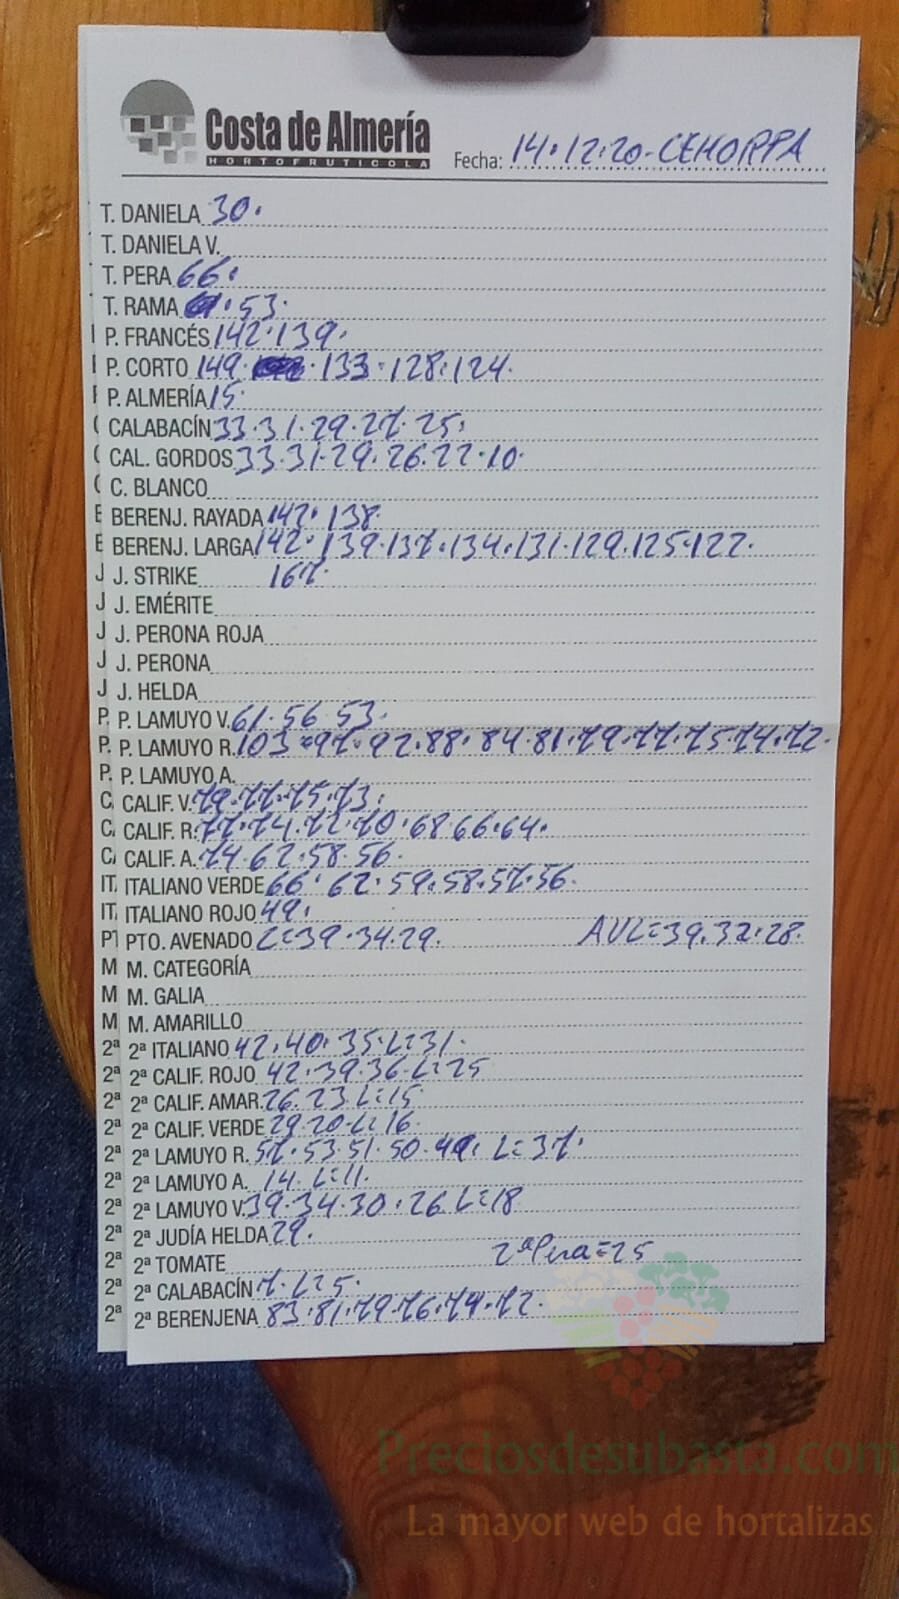 Costa de Almería
HORTOFRUTICOLA
Fecha: 14.12.20-CEHORPA
T. DANIELA 30.
T. DANIELA V.
T. PERA 66.
T. RAMA 53.
P. FRANCÉS 142.139.
P. CORTO 149. .133.128.124.
P. ALMERÍA 15
CALABACÍN 33.31.29.27.25.
CAL. GORDOS 33.31.29.26.22.10.
C. BLANCO
BERENJ. RAYADA 142. 138.
BERENJ. LARGA 142. 139.137.134.131.129.125.122.
J. STRIKE 167.
J. EMÉRITE
J. PERONA ROJA
J. PERONA
J. HELDA
P. LAMUYO V. 61.56.53.
P. LAMUYO R. 103.97.92.88.84.81.79.77.75.74.72.
P. LAMUYO A.
CALIF. V. 79.77.75.73.
CALIF. R. 77.74.72.70.68.66.64.
CALIF. A. 74.62.58.56.
ITALIANO VERDE 66.62.59.58.57.56.
ITALIANO ROJO 49.
PTO. AVENADO L=39.34.29. AVL=39.32.28.
M. CATEGORÍA
M. GALIA
M. AMARILLO
2ª ITALIANO 42.40.35.L=31.
2ª CALIF. ROJO 42.39.36.L=25
2ª CALIF. AMAR. 26.23.L=15
2ª CALIF. VERDE 29.20.L=16.
2ª LAMUYO R. 57.53.51.50.49. L=37.
2ª LAMUYO A. 14.L=11.
2ª LAMUYO V. 39.34.30.26.L=18
2ª JUDÍA HELDA 29.
2ª TOMATE 2ª Pera=25
2ª CALABACÍN 7.L=5.
2ª BERENJENA 83.81.79.76.74.72.
Preciosdesubasta.com
La mayor web de hortalizas